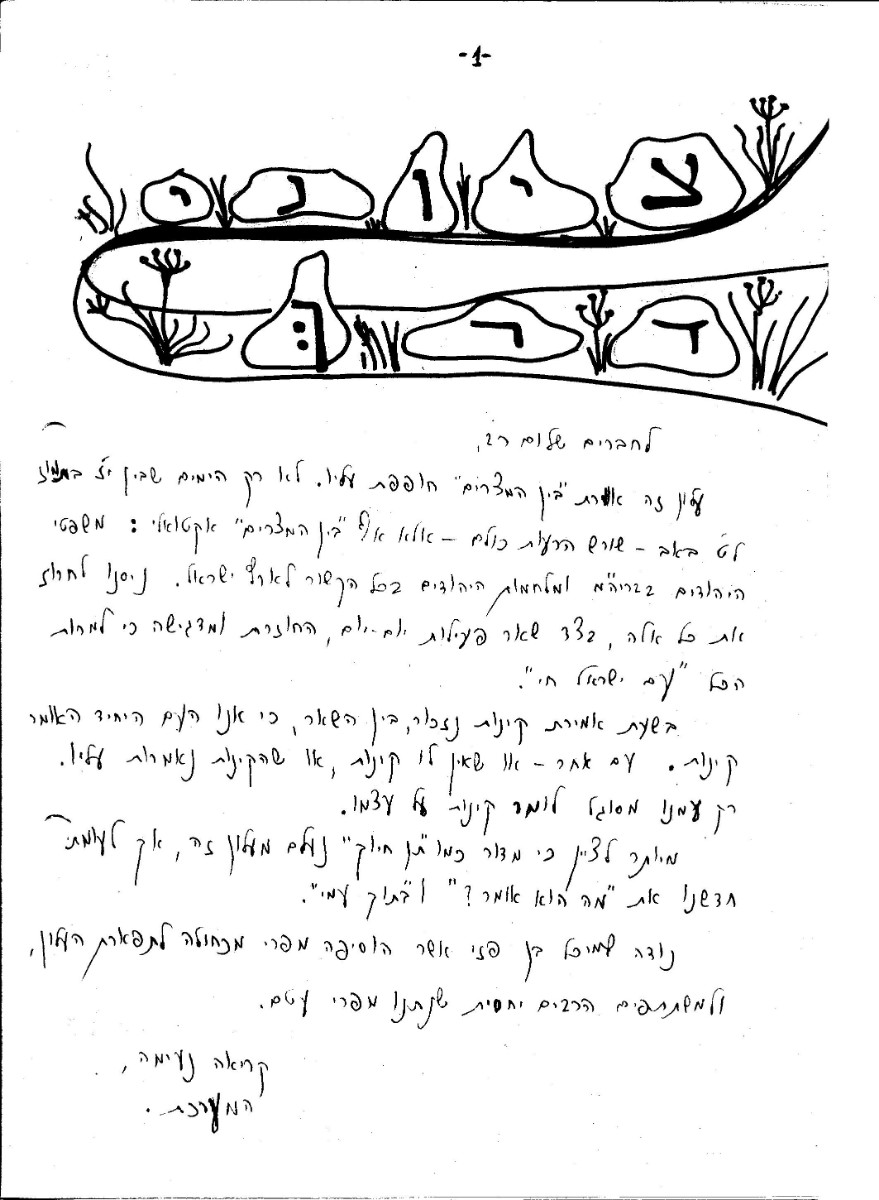 -1-
ציוני
דרך:
לחברים שלום רב,
עלון זה אוירת "בין המצרים" חופפת עליו. לא רק הימים שבין י"ז בתמוז
לט' באב - שורש הרעות כולם - אלא אף "בין המצרים" אקטואלי: משפטי
היהודים בבריה"מ ומלחמות היהודים בכל הקשור לארץ ישראל. ניסנו לחרוז
את כל אלה, בצד שאר פעילות יום-יום, החוזרת ומדגישה כי למרות
הכל "עם ישראל חי".
בשעת אמירת קינות נזכור, בין השאר, כי אנו העם היחיד האומר
קינות. עם אחר - או שאין לו קינות, או שהקינות נאמרות עליו.
רק עמנו מסוגל לומר קינות על עצמו.
מיותר לציין כי מדור כמו "תן חיוך" נעלם מעלון זה, אך לעומת
חדשנו את "מה הוא אומר?" ו"בתוך עמי".
נודה למיכל בן פזי אשר הוסיפה מפרי מכחולה לתפארת העלון,
ולמשתתפים הרבים יחסית שנתנו מפרי עטם.
קריאה נעימה,
המערכת.